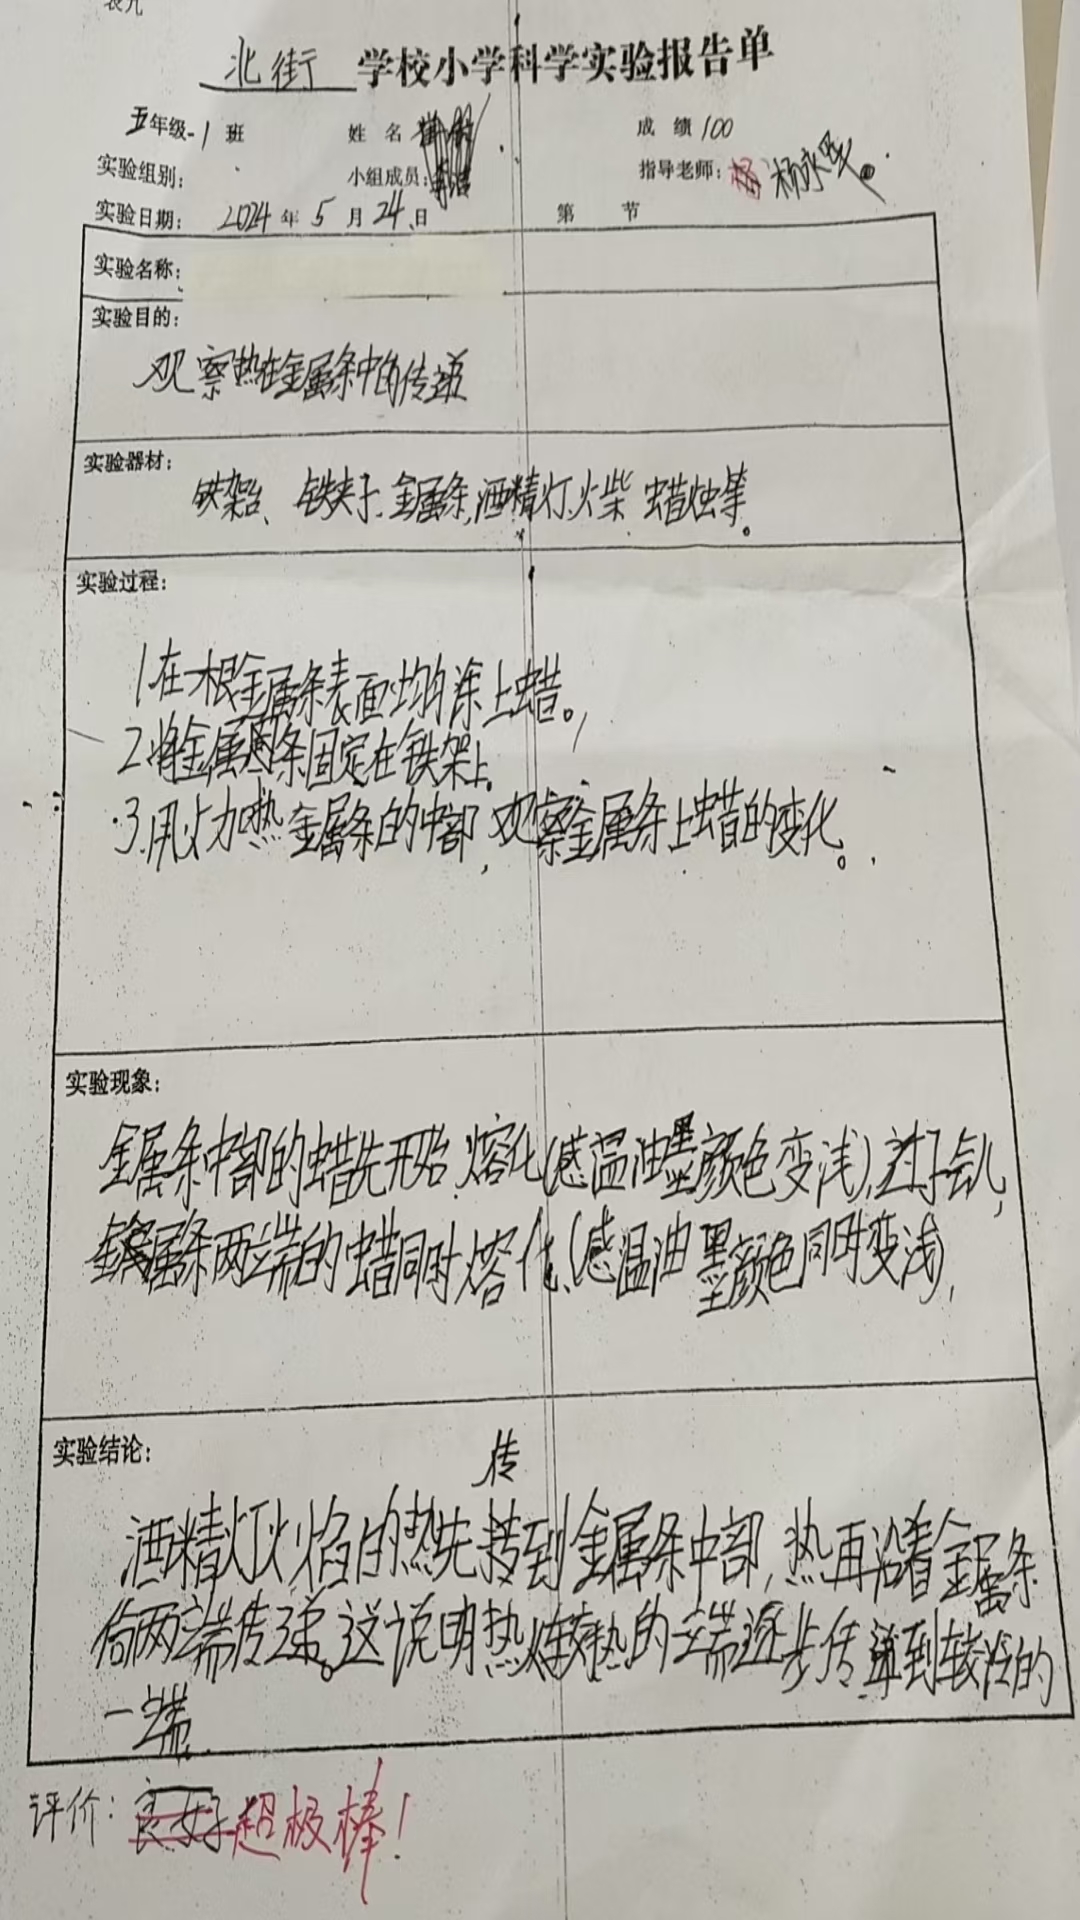 表九
北街 学校小学科学实验报告单
五年级-1班 姓名 成绩100
实验组别: 小组成员: 指导老师: 杨
实验日期: 2024年5月24日 第 节
实验名称:
实验目的:
观察热在金属条中的传递
实验器材:
铁架台、铁夹子、金属条,酒精灯、火柴 蜡烛等。
实验过程:
1在一根金属条表面均匀涂上蜡。
2.将金属条固定在铁架上。
3.用火加热金属条的中部,观察金属条上蜡的变化。
实验现象:
金属条中部的蜡先开始熔化(感温油墨颜色变浅),过了一会儿,
金属条两端的蜡同时熔化、(感温油墨颜色同时变浅),
实验结论:
传
酒精灯火焰的热先转到金属条中部,热再沿着金属条
向两端传递。这说明热从较热的一端逐步传递到较冷的
一端.
评价: 良好 超极棒!